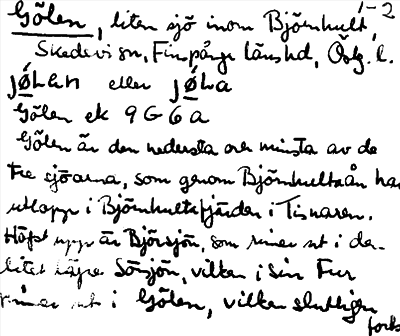 1-2
Gölen, liten sjö inom Björnhult,
Skedevi sn, Finspånga länshd, Östg. l.
jǿlen eller jǿla
Gölen ek 9G6a
Gölen är den nedersta och minsta av de
tre sjöarna, som genom Björnhultsån har
utlopp i Björnhultsfjärden i Tisnaren.
Högst upp är Björsjön, som rinner ut i den
litet lägre Sörsjön, vilken i sin tur
rinner ut i Gölen, vilken slutligen
forts